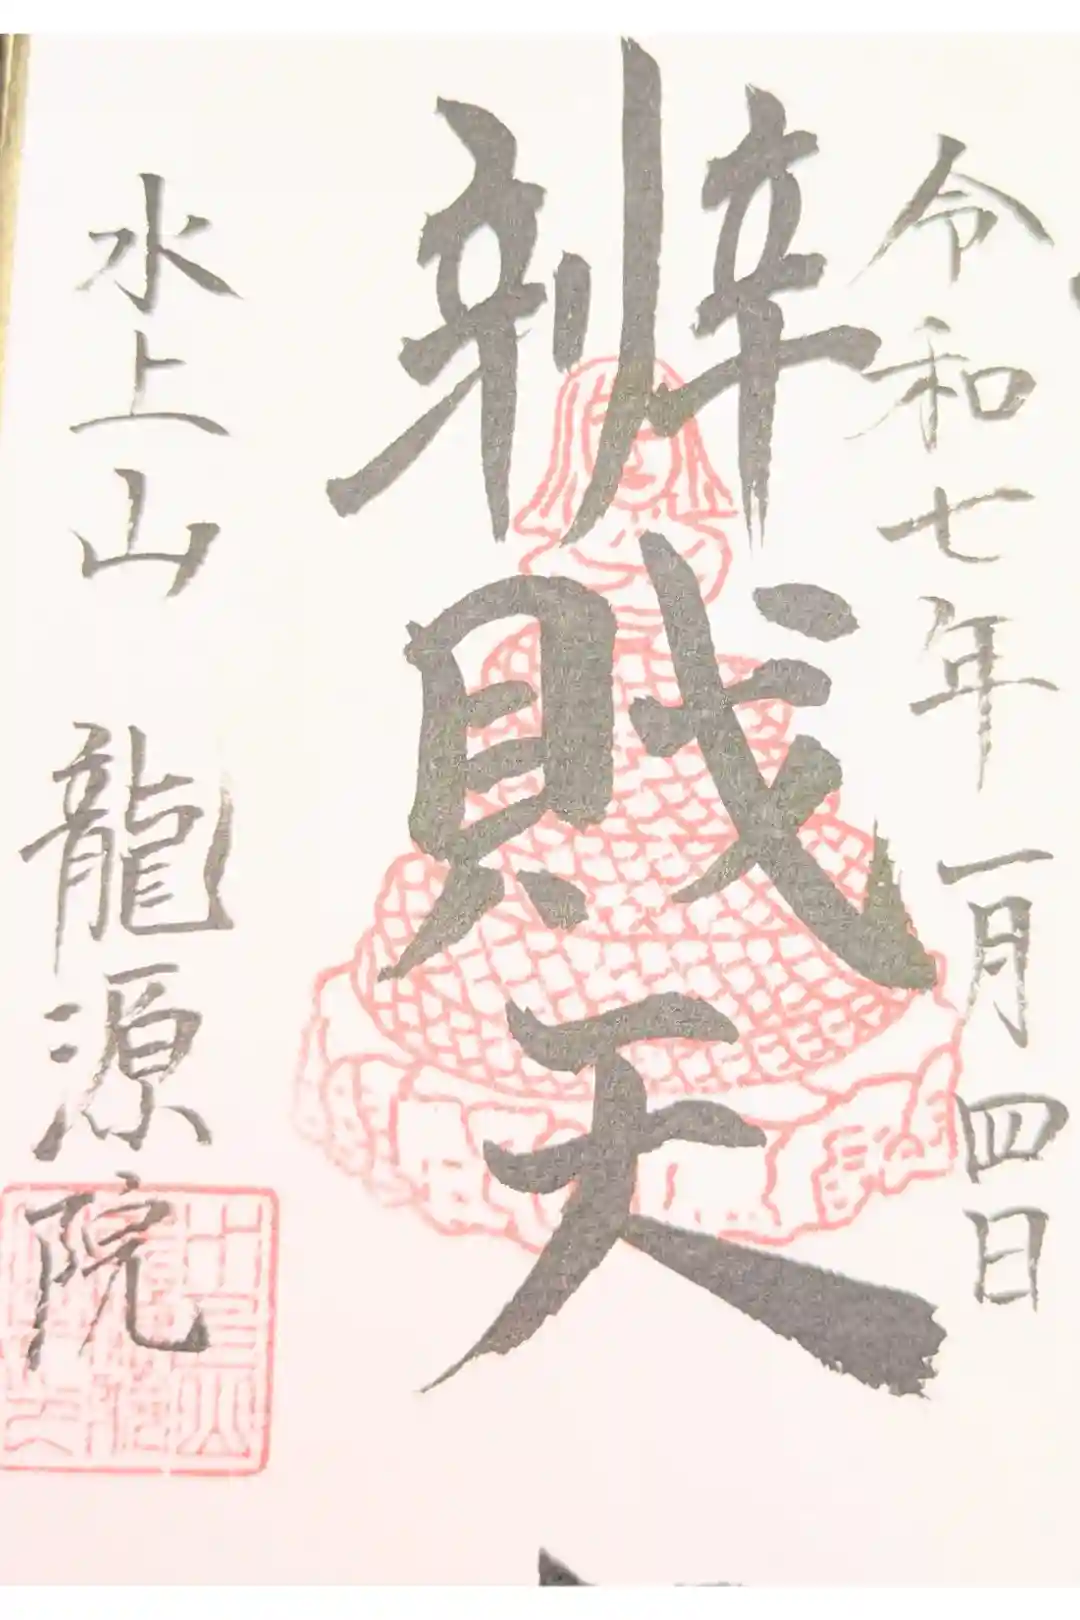 令和七年一月四日
辨財天
水上山 龍源院